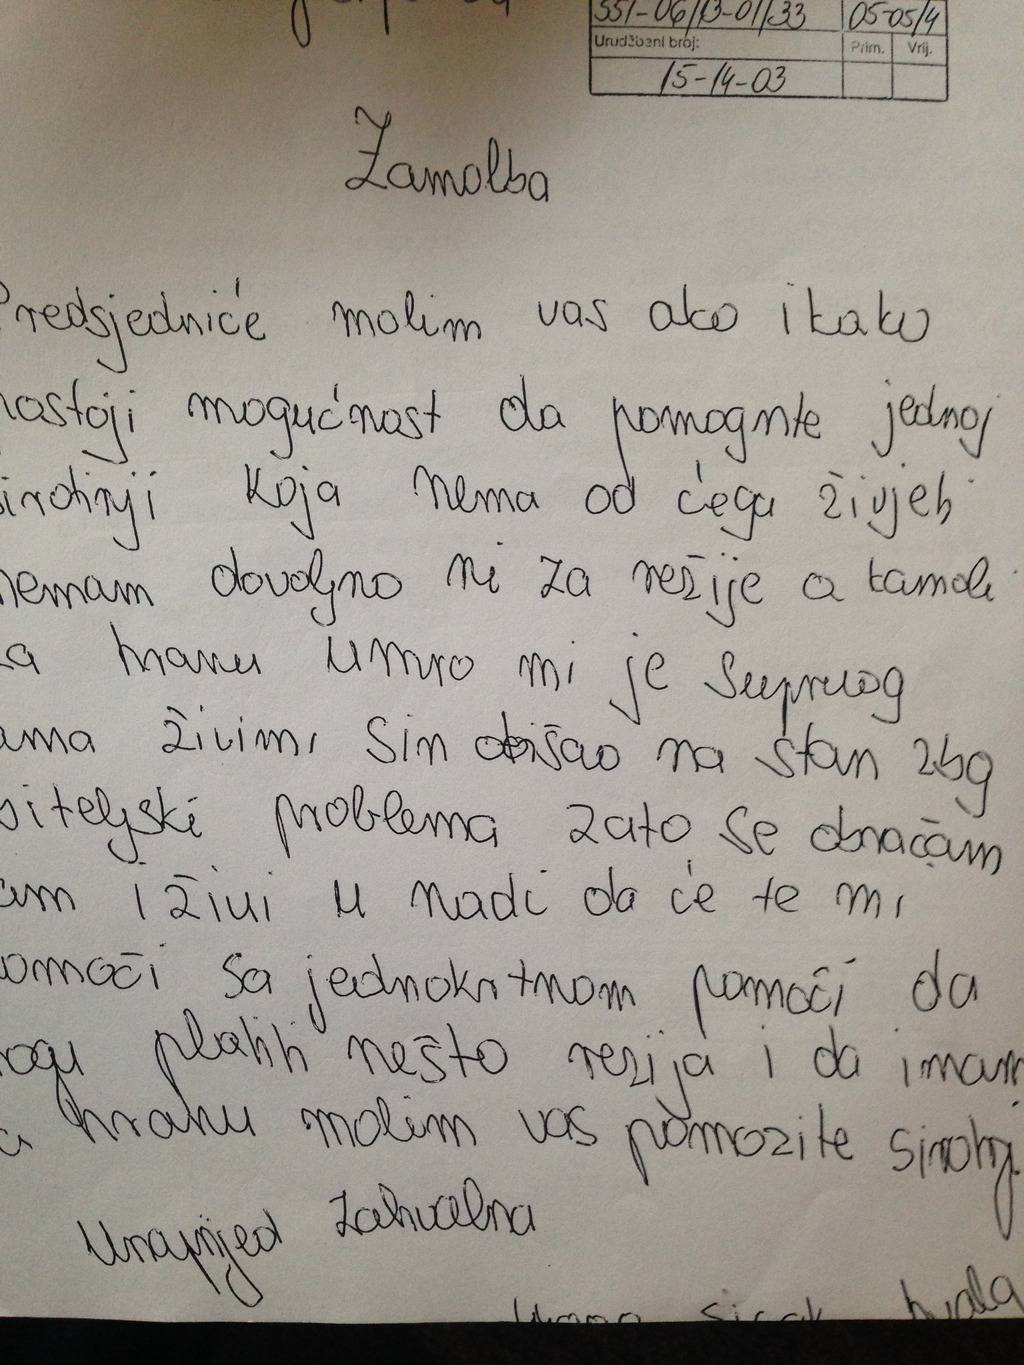 551-06/13-01/33 05-05/4
Urudžbeni broj: Prim. Vrij.
15-14-03
Zamolba
Predsjedniće molim vas ako ikako
nastoji mogućnost da pomognte jednoj
sirotinji koja nema od ćega živjeti
nemam dovoljno ni za režije a kamoli
za hranu umro mi je suprug
sama živim sin otišao na stan zbg
obiteljski problema zato se obraćam
vam i živi u nadi da će te mi
pomoći sa jednokrtnom pomoći da
mogu platiti nešto rezija i da imam
za hranu molim vas pomozite
Unaprijed zahvalna
hvala